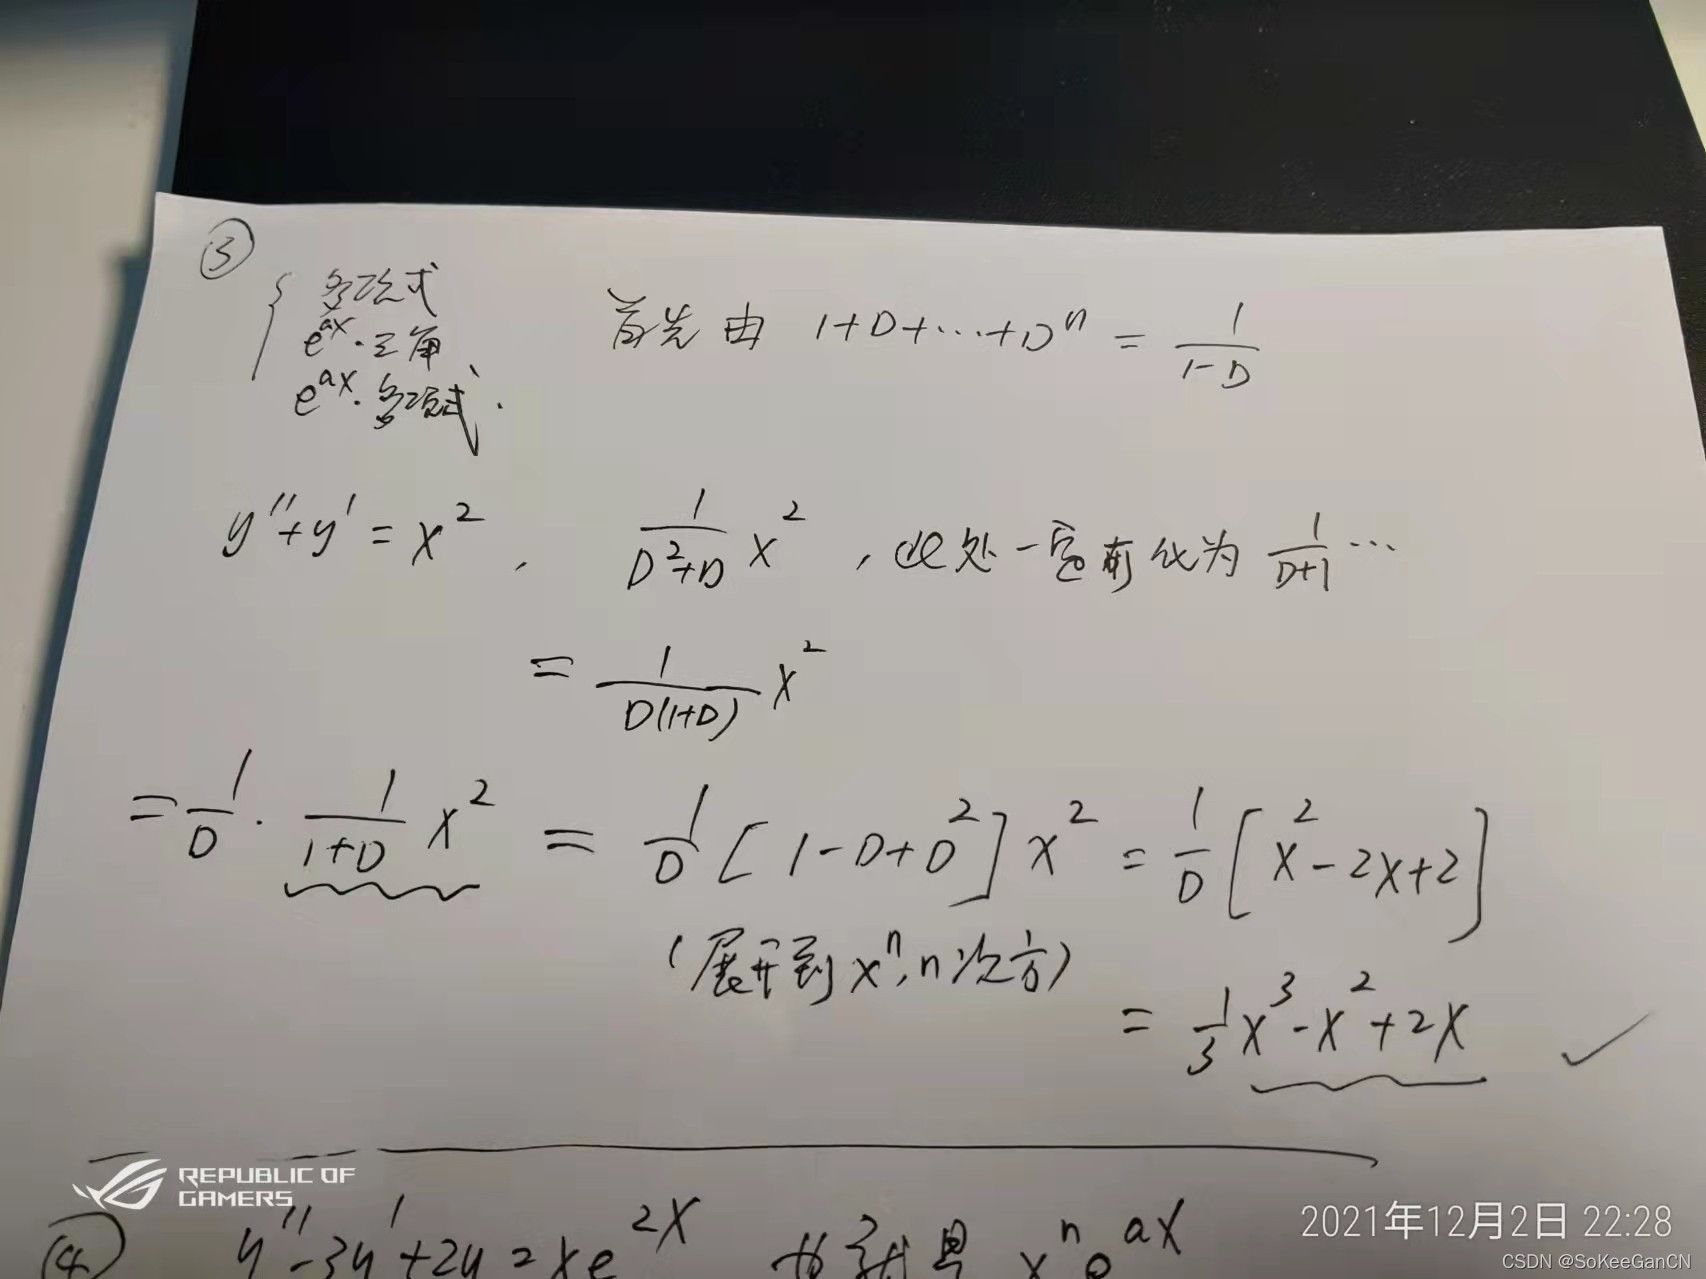 ③
多项式
e^{ax}·三角
e^{ax}·多项式.
首先由 1+D+…+D^n = \frac{1}{1-D}
y''+y'=x^2, \frac{1}{D^2+D}x^2, 此处一定要化为 \frac{1}{D+1}…
= \frac{1}{D(1+D)}x^2
= \frac{1}{D}·\frac{1}{1+D}x^2 = \frac{1}{D}[1-D+D^2]x^2 = \frac{1}{D}[x^2-2x+2]
(展开到x^n, n次方)
= \frac{1}{3}x^3-x^2+2x ✓
REPUBLIC OF
GAMERS
④ y''-3y'+2y=xe^{2x} 也就是 x^n e^{ax}
2021年12月2日 22:28
CSDN @SoKeeGanCN